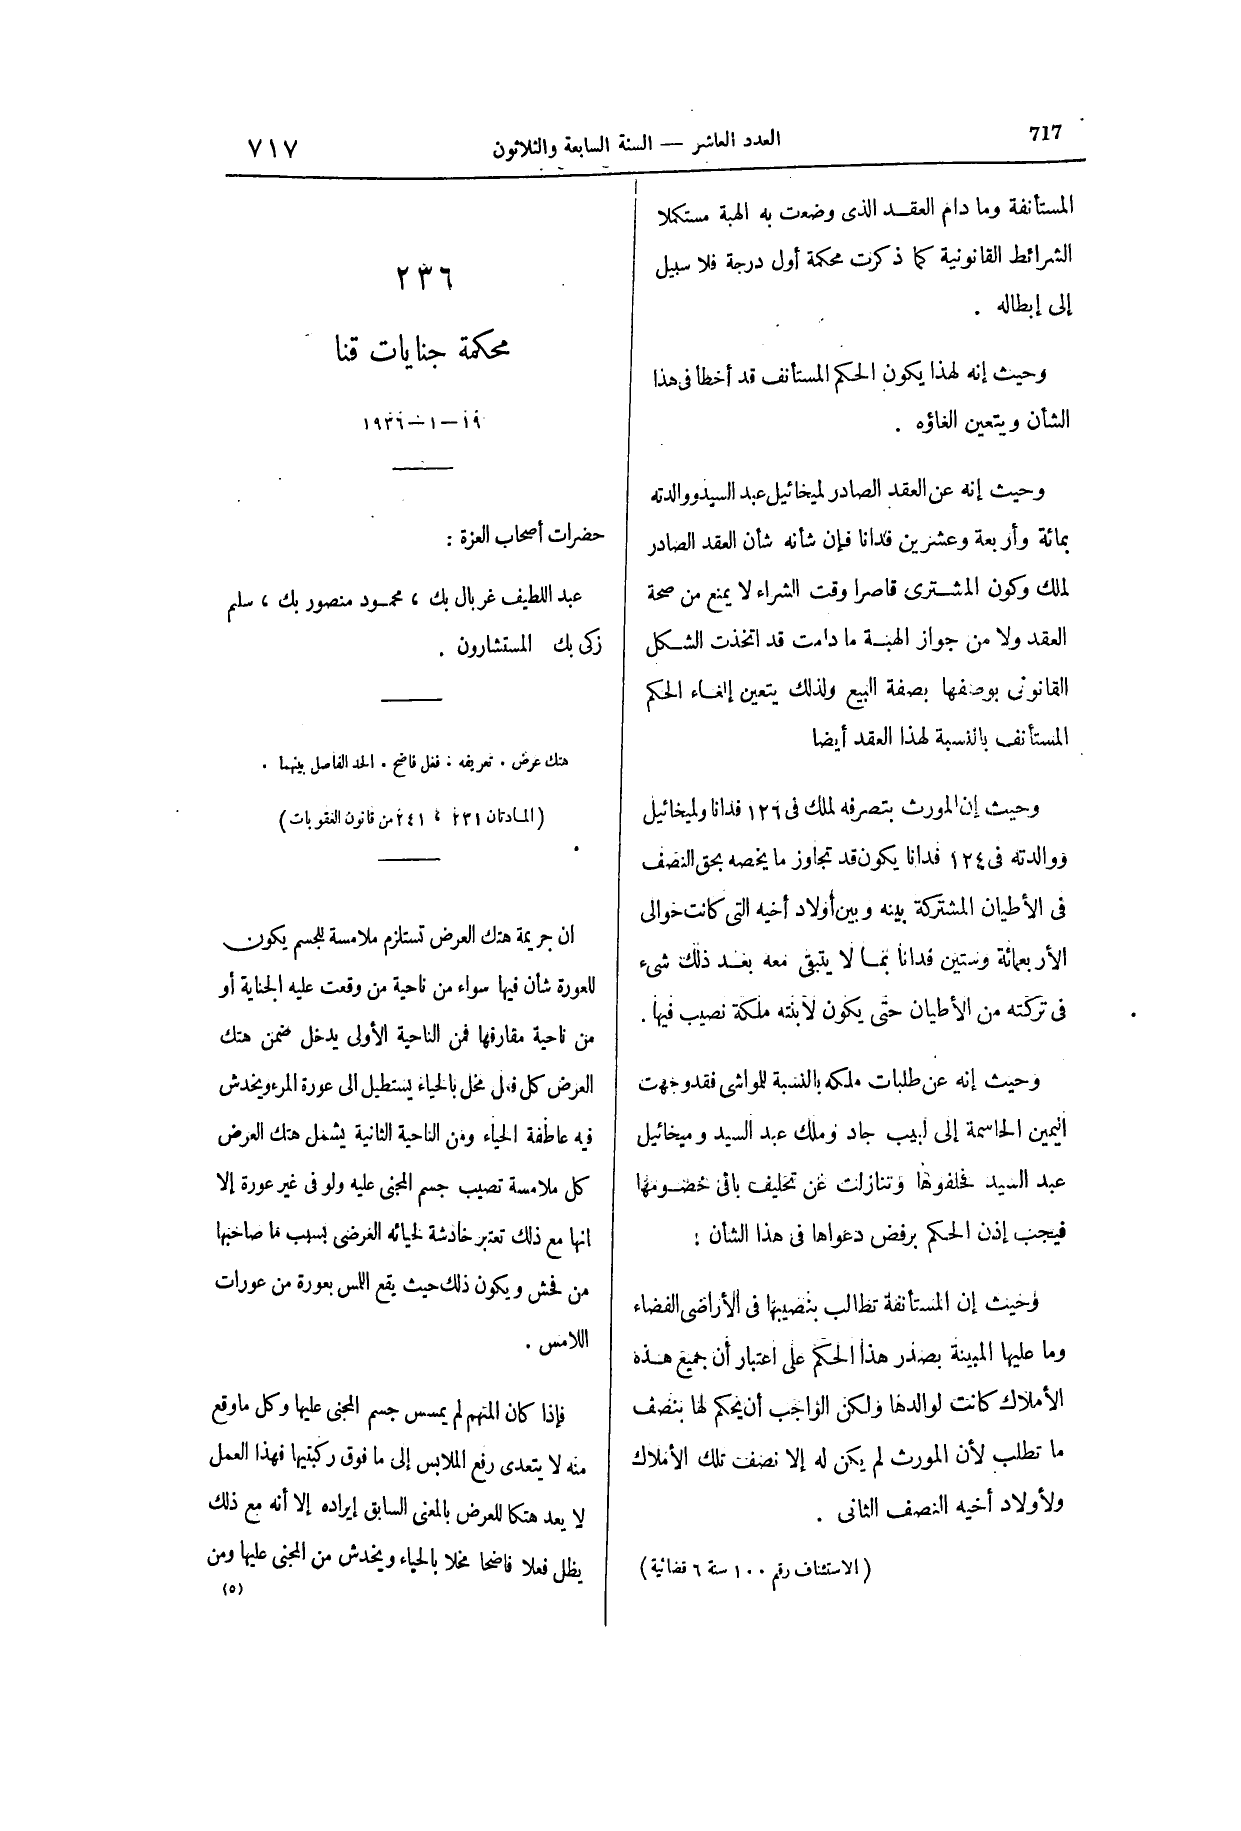 717
العدد العاشر — السنة السابعة والثلاثون
٧١٧
المستأنفة وما دام العقـد الذى وضعت به الهبة مستكملا
الشرائط القانونية كما ذكرت محكمة أول درجة فلا سبيل
إلى إبطاله .
وحيث إنه لهذا يكون الحكم المستأنف قد أخطأ فى هذا
الشأن ويتعين الغاؤه .
وحيث إنه عن العقد الصادر لميخائيل عبد السيد ووالدته
بمائة وأربعة وعشرين فدانا فإن شأنه شأن العقد الصادر
لملك وكون المشـترى قاصرا وقت الشراء لا يمنع من صحة
العقد ولا من جواز الهبـة ما دامت قد اتخذت الشـكل
القانونى بوصفها بصفة البيع ولذلك يتعين إلغـاء الحكم
المستأنف بالنسبة لهذا العقد أيضا
وحيث إن المورث بتصرفه لملك فى ١٢٦ فدانا ولميخائيل
ووالدته فى ١٢٤ فدانا يكون قد تجاوز ما يخصه بحق النصف
فى الأطيان المشتركة بينه وبين أولاد أخيه التى كانت حوالى
الأربعمائة وستين فدانا بمـا لا يتبقى معه بعـد ذلك شىء
فى تركته من الأطيان حتى يكون لابنته ملكة نصيب فيها .
وحيث إنه عن طلبات ملكه بالنسبة للمواشى فقد وجهت
اليمين الحاسمة إلى لبيب جاد وملك عبد السيد وميخائيل
عبد السيد فحلفوها وتنازلت عن تحليف باقى خصـومها
فيجب إذن الحكم برفض دعواها فى هذا الشأن :
وحيث إن المستأنفة تطالب بنصيبها فى الأراضى الفضاء
وما عليها المبينة بصدر هذا الحكم على اعتبار أن جميع هـذه
الأملاك كانت لوالدها ولكن الواجب أن يحكم لها بنصف
ما تطلب لأن المورث لم يكن له إلا نصف تلك الأملاك
ولأولاد أخيه النصف الثانى .
( الاستئناف رقم ١٠٠ سنة ٦ قضائية )
٢٣٦
محكمة جنايات قنا
١٩ — ١ — ١٩٣٦
حضرات أصحاب العزة :
عبد اللطيف غربال بك ، محمـود منصور بك ، سليم
زكى بك المستشارون .
هتك عرض . تعريفه . فعل فاضح . الحد الفاصل بينهما .
( المـادتان ٢٣١ ، ٢٤١ من قانون العقوبات )
ان جريمة هتك العرض تستلزم ملامسة للجسم يكون
للعورة شأن فيها سواء من ناحية من وقعت عليه الجناية أو
من ناحية مقارفها فمن الناحية الأولى يدخل ضمن هتك
العرض كل فعل مخل بالحياء يستطيل الى عورة المرء ويخدش
فيه عاطفة الحياء ومن الناحية الثانية يشمل هتك العرض
كل ملامسة تصيب جسم المجنى عليه ولو فى غير عورة إلا
انها مع ذلك تعتبر خادشة لحيائه العرضى بسبب ما صاحبها
من فحش ويكون ذلك حيث يقع اللمس بعورة من عورات
اللامس .
فإذا كان المتهم لم يمسس جسم المجنى عليها وكل ما وقع
منه لا يتعدى رفع الملابس إلى ما فوق ركبتيها فهذا العمل
لا يعد هتكا للعرض بالمعنى السابق إيراده إلا أنه مع ذلك
يظل فعلا فاضحا مخلا بالحياء ويخدش من المجنى عليها ومن
(٥)